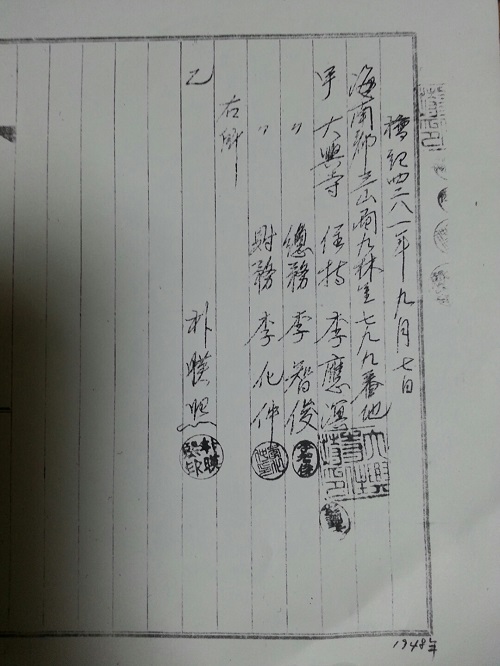 檀紀四二八一年九月七日
海南郡三山面九林里七九九番地
甲 大興寺 住持 李應
〃 總務 李智俊
〃 財務 李化仲
右
乙 朴暎熙
1948年